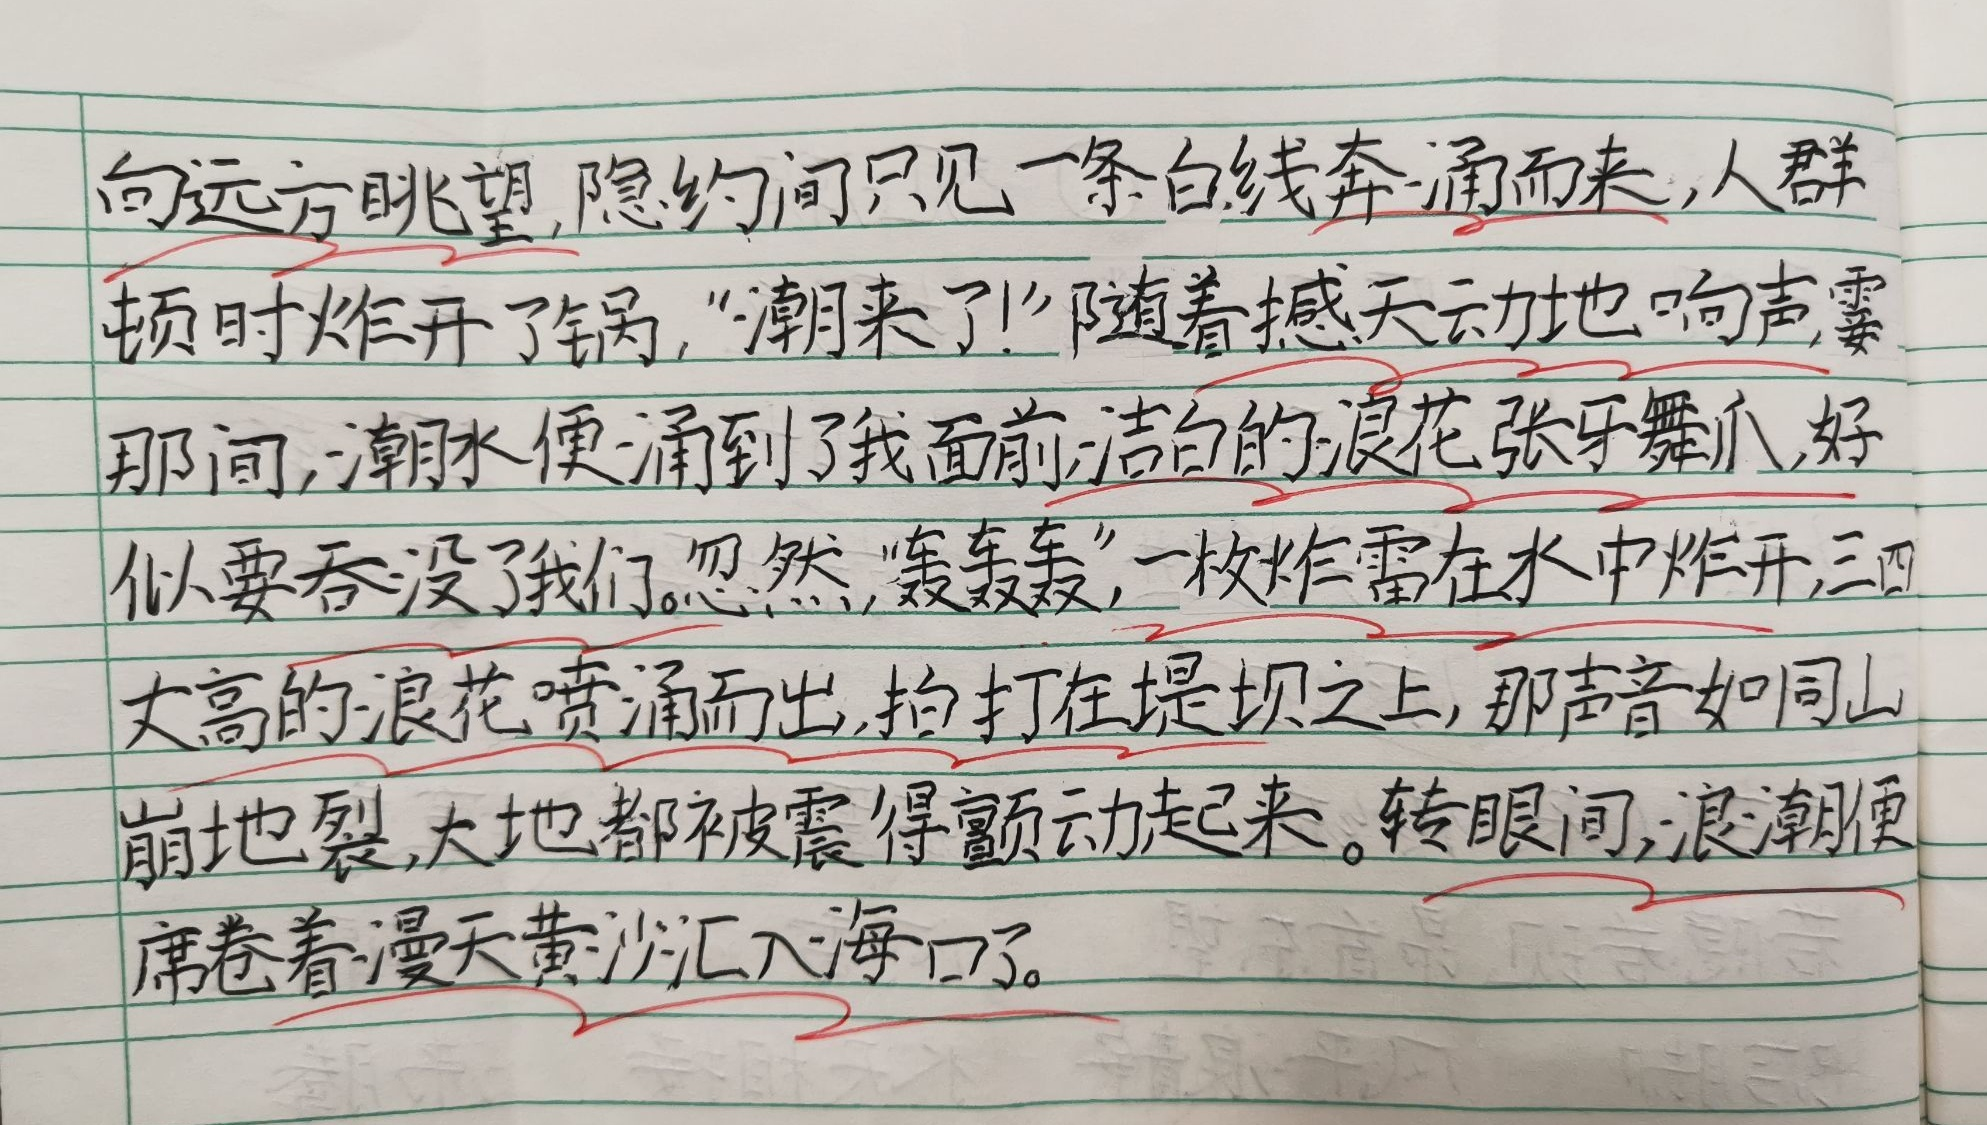 向远方眺望,隐约间只见一条白线奔涌而来,人群
顿时炸开了锅,“潮来了!”随着撼天动地响声,霎
那间,潮水便涌到了我面前,洁白的浪花张牙舞爪,好
似要吞没了我们。忽然,“轰轰轰”,一枚炸雷在水中炸开,三四
丈高的浪花喷涌而出,拍打在堤坝之上,那声音如同山
崩地裂,大地都被震得颤动起来。转眼间,浪潮便
席卷着漫天黄沙汇入海口了。